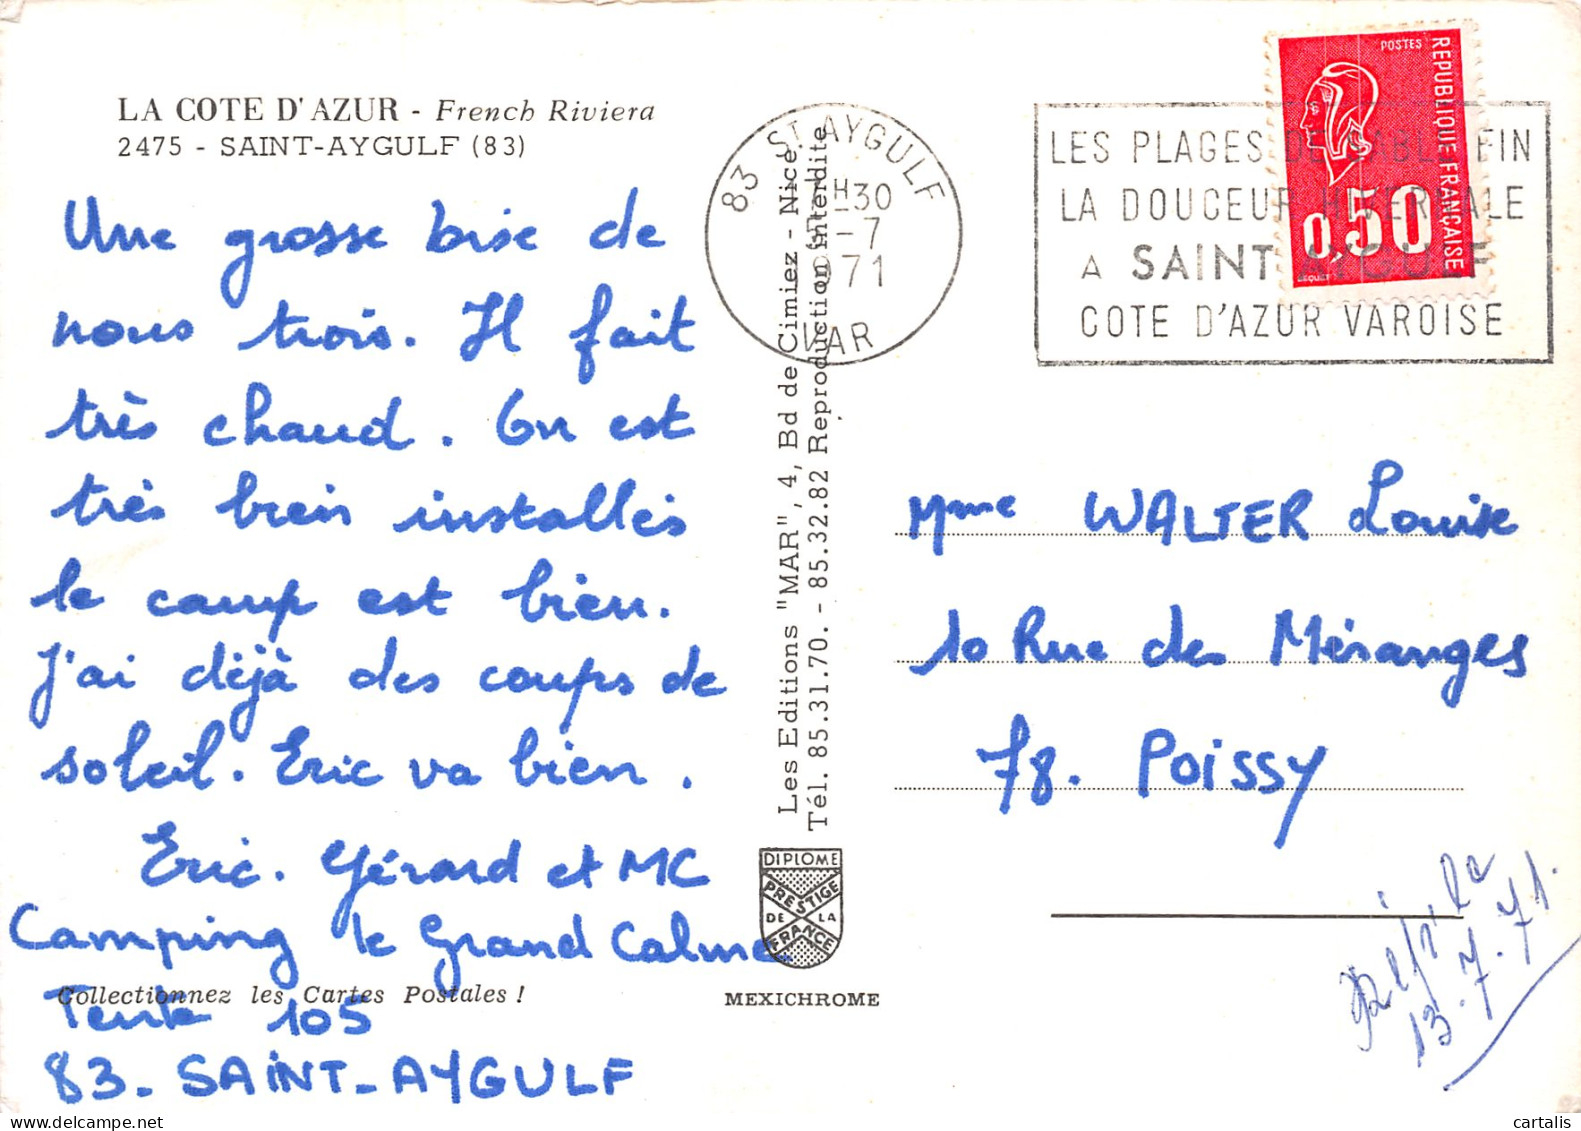 LA COTE D'AZUR - French Riviera
2475 - SAINT-AYGULF (83)
Une grosse bise de
nous trois. Il fait
très chaud. On est
très bien installés
le camp est bien.
J'ai déjà des coups de
soleil. Eric va bien.
Eric. Gérard et MC
Camping le Grand Calme
Collectionnez les Cartes Postales !
Tente 105
83. SAINT-AYGULF
Les Editions "MAR", 4, Bd de Cimiez - Nice
Tél. 85.31.70. - 85.32.82 Reproduction interdite
DIPLOME
PRESTIGE
DE LA
FRANCE
MEXICHROME
83 ST AYGULF
H30
-7
1971
VAR
LES PLAGES DE SABLE FIN
LA DOUCEUR HIVERNALE
A SAINT AYGULF
COTE D'AZUR VAROISE
POSTES
REPUBLIQUE FRANÇAISE
0,50
BEQUET
Mme WALTER Louise
10 Rue des Méranges
78. POISSY
13.7.71.
cartalis